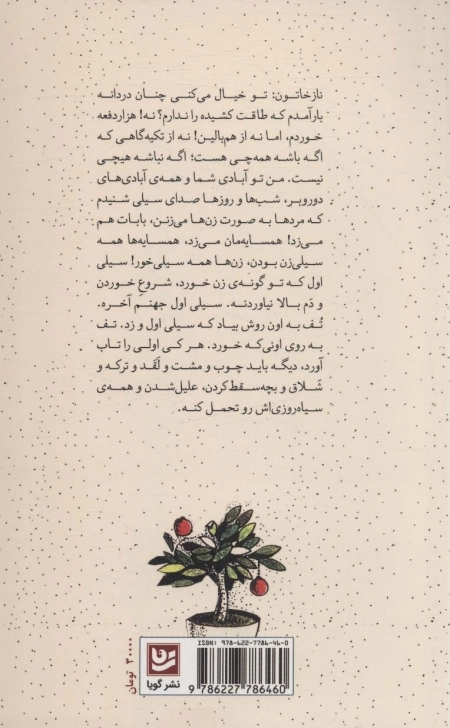 نازخاتون: تو خیال می‌کنی چنان دردانه
بارآمدم که طاقت کشیده را ندارم؟ نه! هزاردفعه
خوردم، اما نه از هم‌بالین! نه از تکیه‌گاهی که
اگه باشه همه‌چی هست؛ اگه نباشه هیچی
نیست. من تو آبادی شما و همه‌ی آبادی‌های
دوروبر، شب‌ها و روزها صدای سیلی شنیدم
که مردها به صورت زن‌ها می‌زنن، بابات هم
می‌زد! همسایه‌مان می‌زد، همسایه‌ها همه
سیلی‌زن بودن، زن‌ها همه سیلی‌خور! سیلی
اول که تو گونه‌ی زن خورد، شروعِ خوردن
و دَم بالا نیاوردنه. سیلی اول جهنم آخره.
تُف به اون روش بیاد که سیلی اول و زد. تف
به روی اونی‌که خورد. هر کی اولی را تاب
آورد، دیگه باید چوب و مشت و لَقَد و ترکه و
شَلاق و بچه‌سقط‌کردن، علیل‌شدن و همه‌ی
سیاه‌روزی‌اش رو تحمل کنه.
ISBN: 978-622-7786-46-0
۳۰۰۰۰ تومان
نشر گویا
9 786227 786460